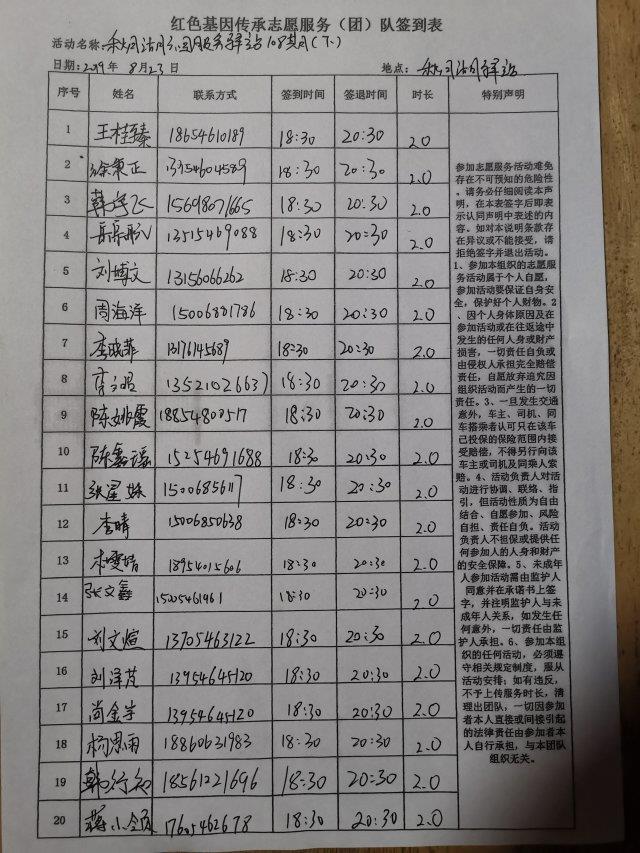 红色基因传承志愿服务（团）队签到表
活动名称：108期（下）
日期：2019年 8月23日 地点：
序号 姓名 联系方式 签到时间 签退时间 时长 特别声明
1 王桂臻 18654610189 18:30 20:30 2.0
2 徐秉正 13954604589 18:30 20:30 2.0
3 15698071665 18:30 20:30 2.0
4 13515469088 18:30 20:30 2.0
5 刘博文 13156066262 18:30 20:30 2.0
6 周海洋 15006881786 18:30 20:30 2.0
7 李晓菲 13176145689 18:30 20:30 2.0
8 13521026637 18:30 20:30 2.0
9 陈姚霞 18854800517 18:30 20:30 2.0
10 陈鑫瑶 15254691688 18:30 20:30 2.0
11 张星姝 18:30 20:30 2.0
12 李晴 15006850638 18:30 20:30 2.0
13 18954015606 18:30 20:30 2.0
14 张文鑫 15005461961 18:30 20:30 2.0
15 刘文煊 13705463122 18:30 20:30 2.0
16 刘泽芃 13954645120 18:30 20:30 2.0
17 尚金宇 13954645120 18:30 20:30 2.0
18 杨思雨 18860631983 18:30 20:30 2.0
19 韩行知 18561221696 18:30 20:30 2.0
20 蒋小涵 17605462678 18:30 20:30 2.0
参加志愿服务活动难免
存在不可预知的危险性
。请务必仔细阅读本声
明，在本表签字后即表
示认同声明中表述的内
容。如对本说明条款存
在异议或不能接受，请
拒绝签字并退出活动。
1、参加本组织的志愿服
务活动属于个人自愿，
参加活动要保证自身安
全，保护好个人财物。2
、因个人身体原因及在
参加活动或在往返途中
发生的任何人身或财产
损害，一切责任自负或
由侵权人承担完全赔偿
责任，自愿放弃追究因
组织活动而产生的一切
责任。3、一旦发生交通
意外，车主、司机、同
车搭乘者认可只在该车
已投保的保险范围内接
受赔偿，不得另行向该
车主或司机及同乘人索
赔。4、活动负责人对活
动进行协调、联络、指
引，但活动性质为自由
结合、自愿参加、风险
自担、责任自负。活动
负责人不担保或提供任
何参加人的人身和财产
的安全保障。5、未成年
人参加活动需由监护人
同意并在承诺书上签
字，并注明监护人与未
成年人关系，如发生任
何意外，一切责任由监
护人承担。6、参加本组
织的任何活动，必须遵
守相关规定制度，服从
活动安排；如有违反，
不予上传服务时长，清
理出团队，一切因参加
者本人直接或间接引起
的法律责任由参加者本
人自行承担，与本团队
组织无关。